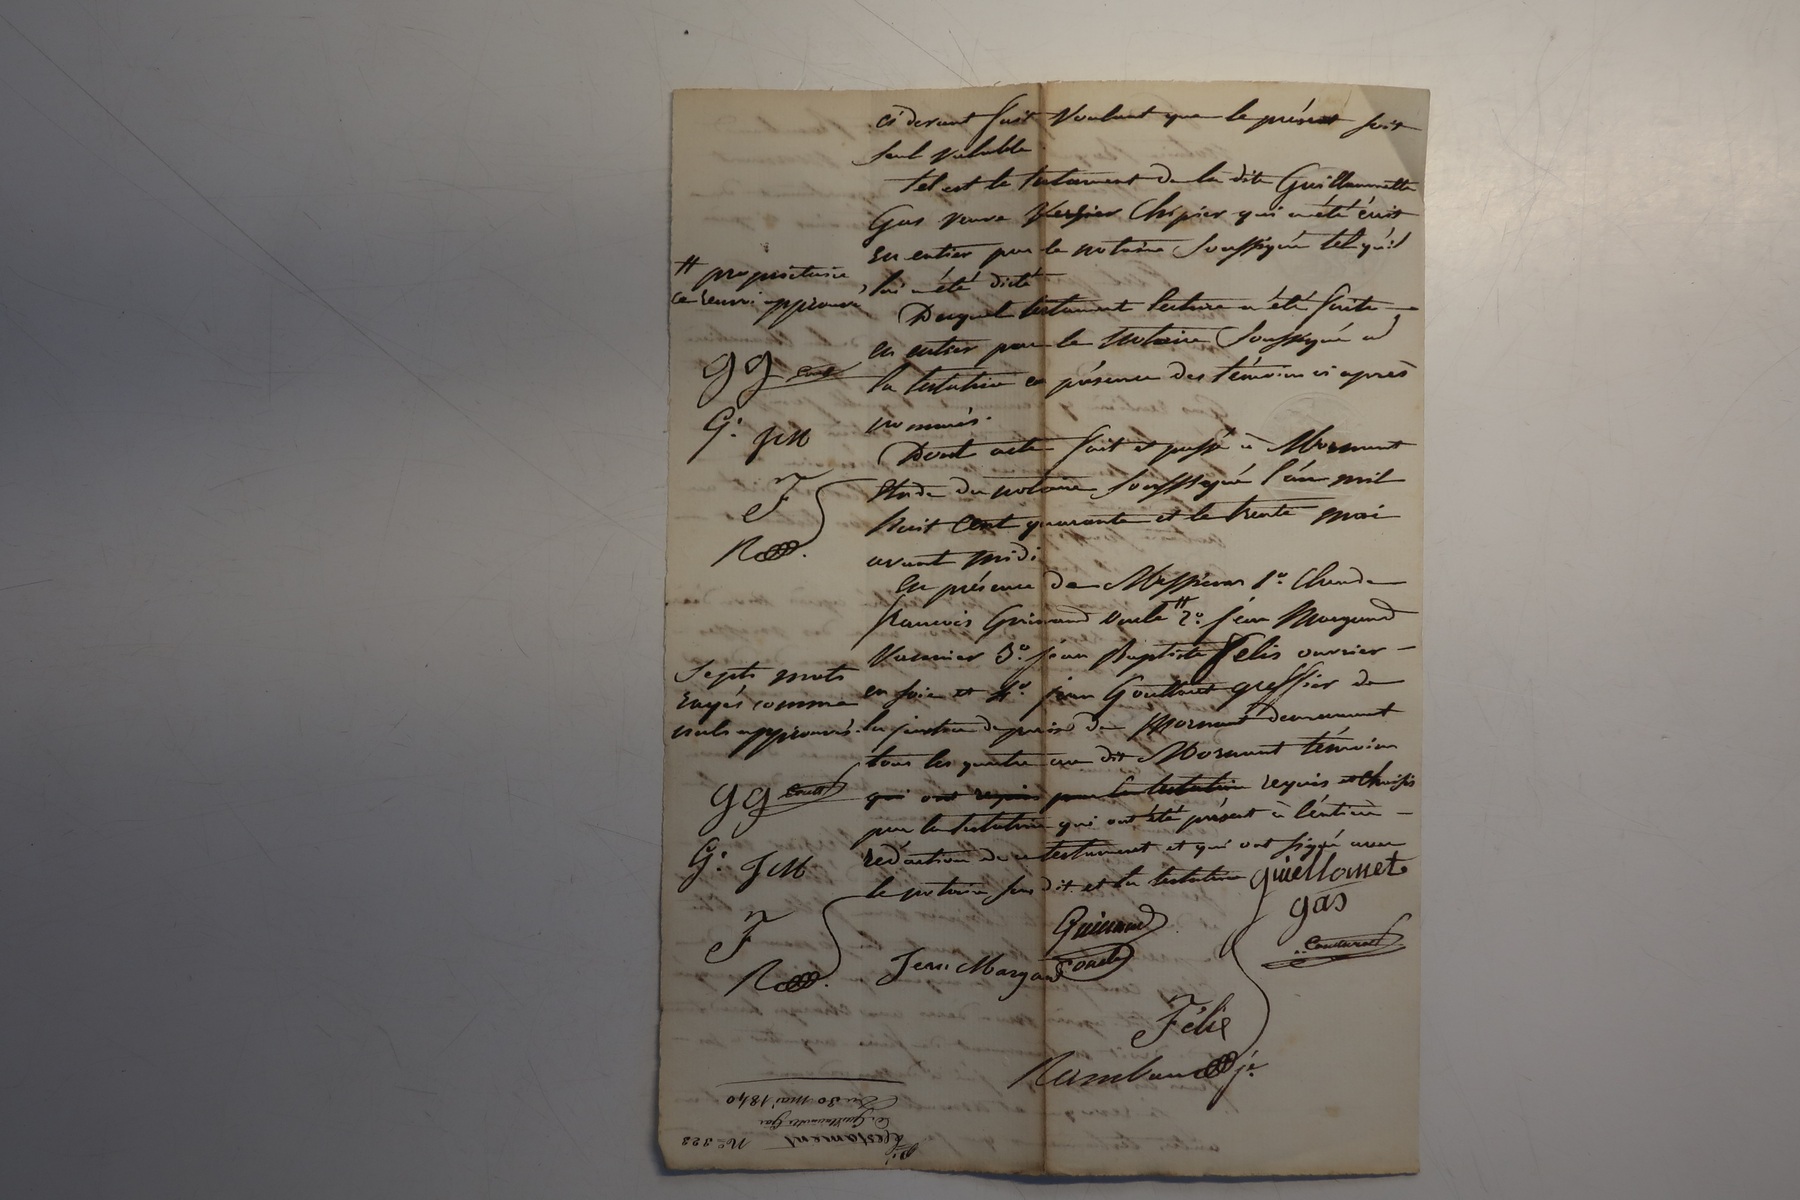 ci devant fait voulant que le présent soit
seul valable.
Tel est le testament de la dite Guillaumette
Gas veuve Verzier Chipier qui a été écrit
en entier par le notaire soussigné tel qu'il
lui a été dicté
Duquel testament lecture a été faite
en entier par le notaire soussigné a
la testatrice en présence des témoins ci après
nommés.
Dont acte fait et passé à Mornant
étude du notaire soussigné l'an mil
huit cent quarante et le trente mai
avant midi.
En présence de Messieurs 1º Claude
françois Guinand # 2º jéan Margand
3º jéan Baptiste Felis ouvrier
en soie et 4º jéan greffier de
la justice de paix de Mornant demeurant
tous les quatre au dit Mornant témoins
qui ont requis par la testatrice requis et choisis
par la testatrice qui ont été présent à l'entière
rédaction de ce testament et qui ont signé avec
le notaire susdit et la testatrice
# propriétaire
ce renvoi approuvé
gg
G. JM
F
R
Septs mots
rayés comme
nuls approuvés
gg
G. JM
F
R
guiellomet
gas
Guinand
Jean Margand
Félix
Rambaud je
Nº 323
Testament
de Guillaumette Gas
Du 30 mai 1840